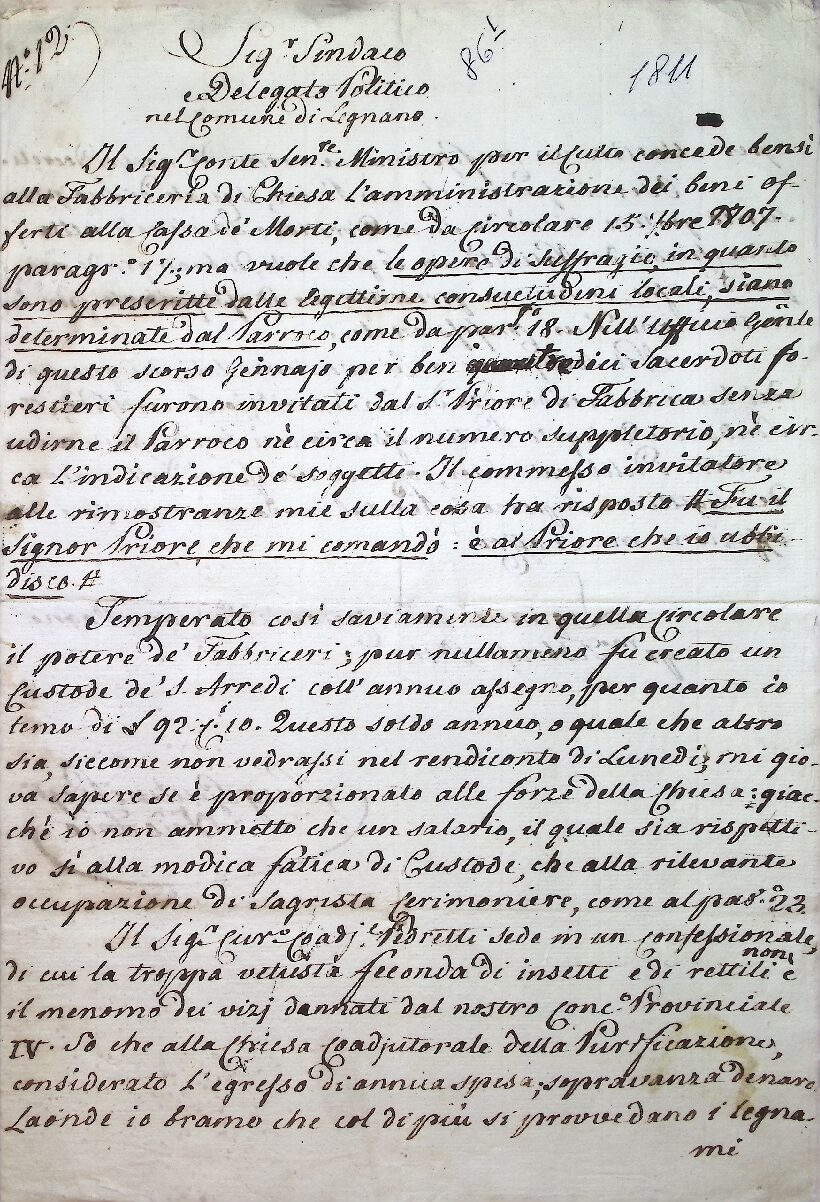 N.° 12.
86.
1811
Sig.r Sindaco
e Delegato Politico
nel Comune di Legnano.
Il Sig.r Conte Sen.re Ministro per il Culto concede bensì
alla Fabbriceria di Chiesa l'amministrazione dei beni of-
ferti alla Cassa de' Morti, come da Circolare 15. 7bre 1807.
paragr.° 17; ma vuole che le opere di Suffragio, in quanto
sono prescritte dalle legittime consuetudini locali, siano
determinate dal Parroco, come da par.° 18. Nell'Ufficio Gen̄le
di questo scorso Gennajo per ben dieci Sacerdoti fo-
restieri furono invitati dal S.r Priore di Fabbrica senza
udirne il Parroco nè circa il numero suppletorio, nè cir-
ca l'indicazione de' soggetti. Il commesso invitatore
alle rimostranze mie sulla cosa ha risposto # Fu il
Signor Priore, che mi comandò: è al Priore che io ubbi-
disco. #
Temperato così saviamente in quella Circolare
il potere de' Fabbriceri; pur nullameno fu creato un
Custode de' S. Arredi coll'annuo assegno, per quanto io
temo di £ 92. 10. Questo soldo annuo, o quale che altro
sia, siccome non vedrassi nel rendiconto di Lunedì; mi gio-
va sapere se è proporzionato alle forze della Chiesa: giac-
chè io non ammetto che un salario, il quale sia rispetti-
vo sì alla modica fatica di Custode, che alla rilevante
occupazione di Sagrista Cerimoniere, come al par.° 23.
Il Sig.r Cur.° Coadj.e Pedretti sede in un confessionale,
di cui la troppa vetustà feconda di insetti e di rettili non è
il menomo dei vizj dannati dal nostro Conc.° Provinciale
IV. So che alla Chiesa Coadjutorale della Purificazione,
considerato l'egresso di annua spesa, sopravanza denaro.
Laonde io bramo che col di più si provvedano i legna-
mi